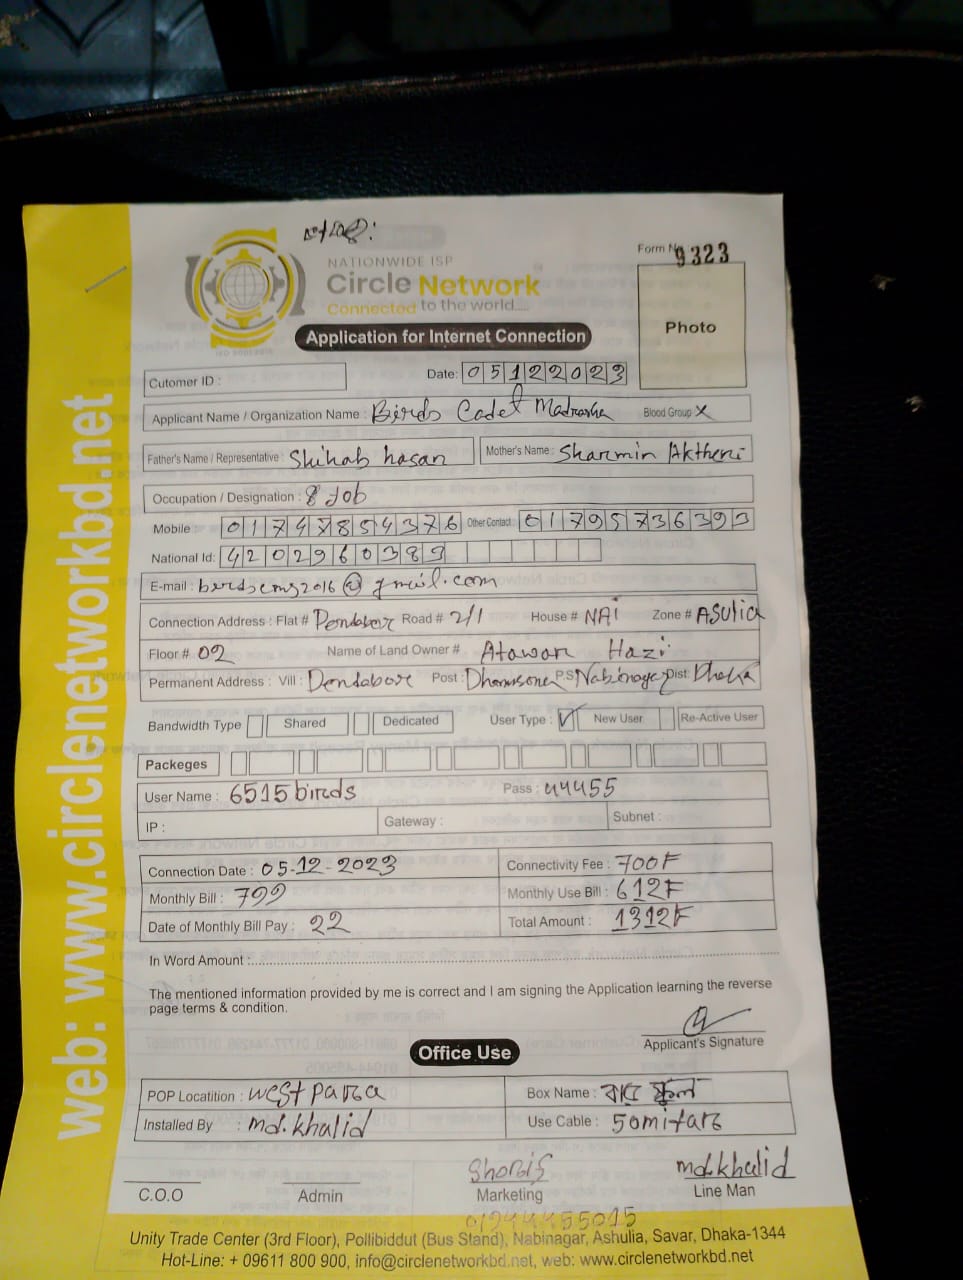 NATIONWIDE ISP
Circle Network
Connected to the world....
Form No 9323
Photo
Application for Internet Connection
Cutomer ID :
Date: 05122023
Applicant Name / Organization Name : Birds Cadet Madrasha Blood Group X
Father's Name / Representative : Shihab hasan Mother's Name : Sharmin Aktheri
Occupation / Designation : Job
Mobile : 01747854376 Other Contact : 01795736393
National Id: 4202960383
E-mail : birdscms2016@gmail.com
Connection Address : Flat # Dendabor Road # 2/1 House # NAI Zone # ASulia
Floor # 02 Name of Land Owner # Atawar Hazi
Permanent Address : Vill : Dendabor Post : Dhamsona P.S Nabinagar Dist: Dhaka
Bandwidth Type Shared Dedicated User Type : ✓ New User Re-Active User
Packeges
User Name : 6515birds Pass : 44455
IP : Gateway : Subnet :
Connection Date : 05-12-2023 Connectivity Fee : 700F
Monthly Bill : 799 Monthly Use Bill : 612F
Date of Monthly Bill Pay : 22 Total Amount : 1312F
In Word Amount :
The mentioned information provided by me is correct and I am signing the Application learning the reverse
page terms & condition.
Applicant's Signature
Office Use
POP Locatition : west para Box Name :
Installed By : md.khalid Use Cable : 50mitar
C.O.O Admin Shorif Marketing md.khalid Line Man
01244455015
Unity Trade Center (3rd Floor), Pollibiddut (Bus Stand), Nabinagar, Ashulia, Savar, Dhaka-1344
Hot-Line: + 09611 800 900, info@circlenetworkbd.net, web: www.circlenetworkbd.net
web: www.circlenetworkbd.net